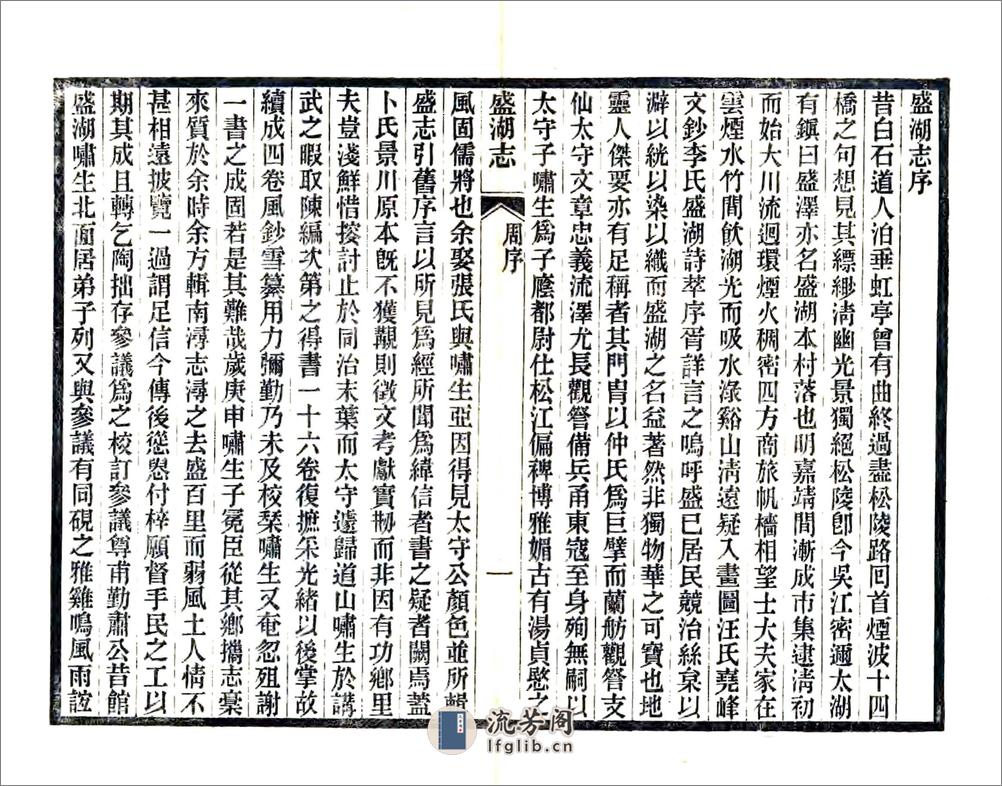 盛湖志序
昔白石道人泊垂虹亭曾有曲終過盡松陵路回首煙波十四
橋之句想見其縹緲淸幽光景獨絕松陵卽今吳江密邇太湖
有鎭曰盛澤亦名盛湖本村落也明嘉靖間漸成市集逮淸初
而始大川流迴環煙火稠密四方商旅帆檣相望士大夫家在
雲煙水竹間飮湖光而吸水淥谿山淸遠疑入畫圖汪氏堯峰
文鈔李氏盛湖詩萃序胥詳言之嗚呼盛已居民競治絲枲以
澼以絖以染以織而盛湖之名益著然非獨物華之可寶也地
靈人傑要亦有足稱者其門胄以仲氏爲巨擘而蘭舫觀詧支
仙太守文章忠義流澤尤長觀詧備兵甬東寇至身殉無嗣以
太守子嘯生爲子廕都尉仕松江偏裨博雅媚古有湯貞愍之
盛湖志
周序
一
風固儒將也余娶張氏與嘯生亞因得見太守公顏色並所輯
盛志引舊序言以所見爲經所聞爲緯信者書之疑者闕焉蓋
卜氏景川原本旣不獲覯則徵文考獻實刱而非因有功鄉里
夫豈淺鮮惜搜討止於同治末葉而太守遽歸道山嘯生於講
武之暇取陳編次第之得書一十六卷復摭采光緒以後掌故
續成四卷風鈔雪纂用力彌勤乃未及校栞嘯生又奄忽殂謝
一書之成固若是其難哉歲庚申嘯生子冕臣從其鄉攜志稾
來質於余時余方輯南潯志潯之去盛百里而弱風土人情不
甚相遠披覽一過謂足信今傳後慫恿付梓願督手民之工以
期其成且轉乞陶拙存參議爲之校訂參議尊甫勤肅公昔館
盛湖嘯生北面居弟子列又與參議有同硯之雅雞鳴風雨誼
流芳阁
lfglib.cn